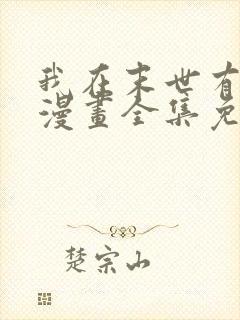 我在末世有
漫畫全集免
楚宗山